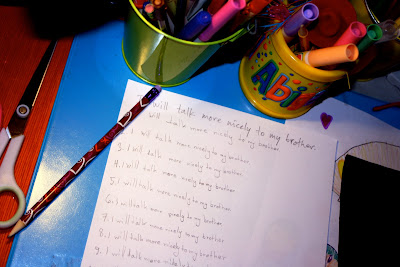 Abi
will talk more nicely to my brother.
will talk more nicely to my brother
I will talk more nicely to my brother
3. I will talk more nicely to my brother
4. I will talk more nicely to my brother
5. I will talk more nicely to my brother
6. I will talk more nicely to my brother
7. I will talk more nicely to my brother
8. I will talk more nicely to my brother
9. I will talk more nicely to my brother